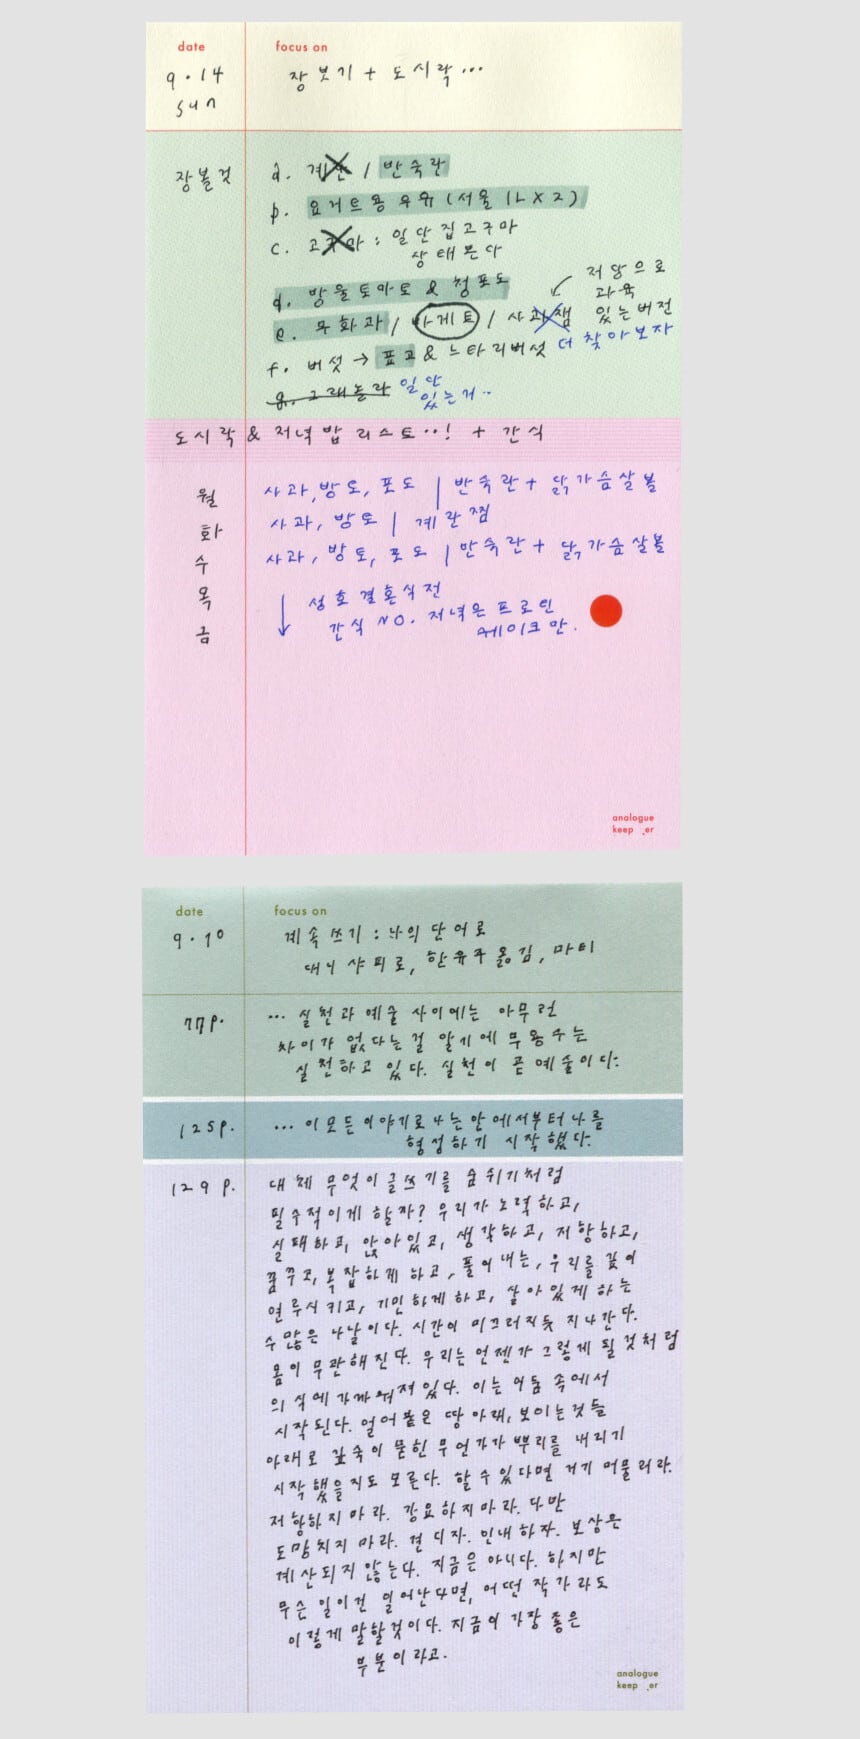 date
focus on
9.14
sun
장보기 + 도시락...
장볼것
a. 계란 / 반숙란
b. 요거트용 우유 (서울 1L x 2)
c. 고구마 : 일단 집고구마
상태본다
d. 방울토마토 & 청포도
저당으로
과육
있는버전
e. 무화과 / 바게트 / 사과잼
더 찾아보자
f. 버섯 → 표고 & 느타리버섯
g. 그래놀라 일단
있는거..
도시락 & 저녁밥 리스트..! + 간식
월 사과, 방토, 포도 | 반숙란 + 닭가슴살볼
화 사과, 방토 | 계란찜
수 사과, 방토, 포도 | 반숙란 + 닭가슴살볼
목 ↓ 성호결혼식전
금 간식 NO. 저녁은 프로틴
쉐이크만.
analogue
keep_er
date
focus on
9.10
계속 쓰기 : 나의 단어로
대니 샤피로, 한유주 옮김, 마티
77p. ... 실천과 예술 사이에는 아무런
차이가 없다는 걸 알기에 무용수는
실천하고 있다. 실천이 곧 예술이다.
125p. ... 이 모든 이야기로 나는 안에서부터 나를
형성하기 시작했다.
129p. 대체 무엇이 글쓰기를 숨쉬기처럼
필수적이게 할까? 우리가 노력하고,
실패하고, 앉아있고, 생각하고, 저항하고,
꿈꾸고, 복잡하게 하고, 풀어내는, 우리를 깊이
연루시키고, 기민하게하고, 살아있게 하는
수많은 나날이다. 시간이 미끄러지듯 지나간다.
몸이 무관해진다. 우리는 언젠가 그렇게 될것처럼
의식에 가까워져 있다. 이는 어둠 속에서
시작된다. 얼어붙은 땅 아래, 보이는것들
아래로 깊숙이 묻힌 무언가가 뿌리를 내리기
시작했을지도 모른다. 할수있다면 거기 머물러라.
저항하지마라. 강요하지마라. 다만
도망치지 마라. 견디자. 인내하자. 보상은
계산되지 않는다. 지금은 아니다. 하지만
무슨 일이건 일어난다면, 어떤 작가라도
이렇게 말할것이다. 지금이 가장 좋은
부분이라고.
analogue
keep_er